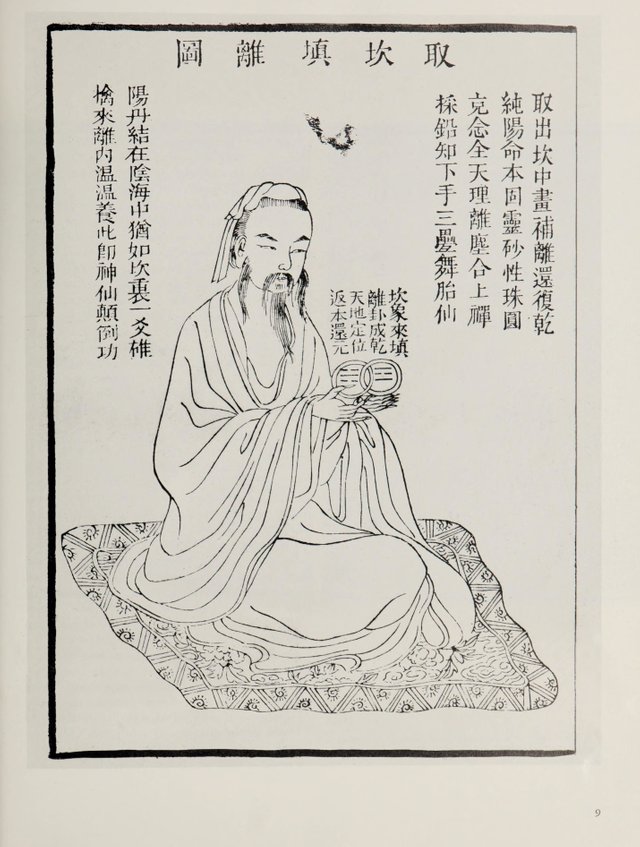 取坎填離圖
取出坎中畫補離還復乾
純陽命本固靈砂性珠圓
克念全天理離塵合上禪
採鉛知下手三疊舞胎仙
坎象來填
離卦成乾
天地定位
返本還元
陽丹結在陰海中猶如坎裏一爻雄
擒來離內溫溫養此即神仙顛倒功
9